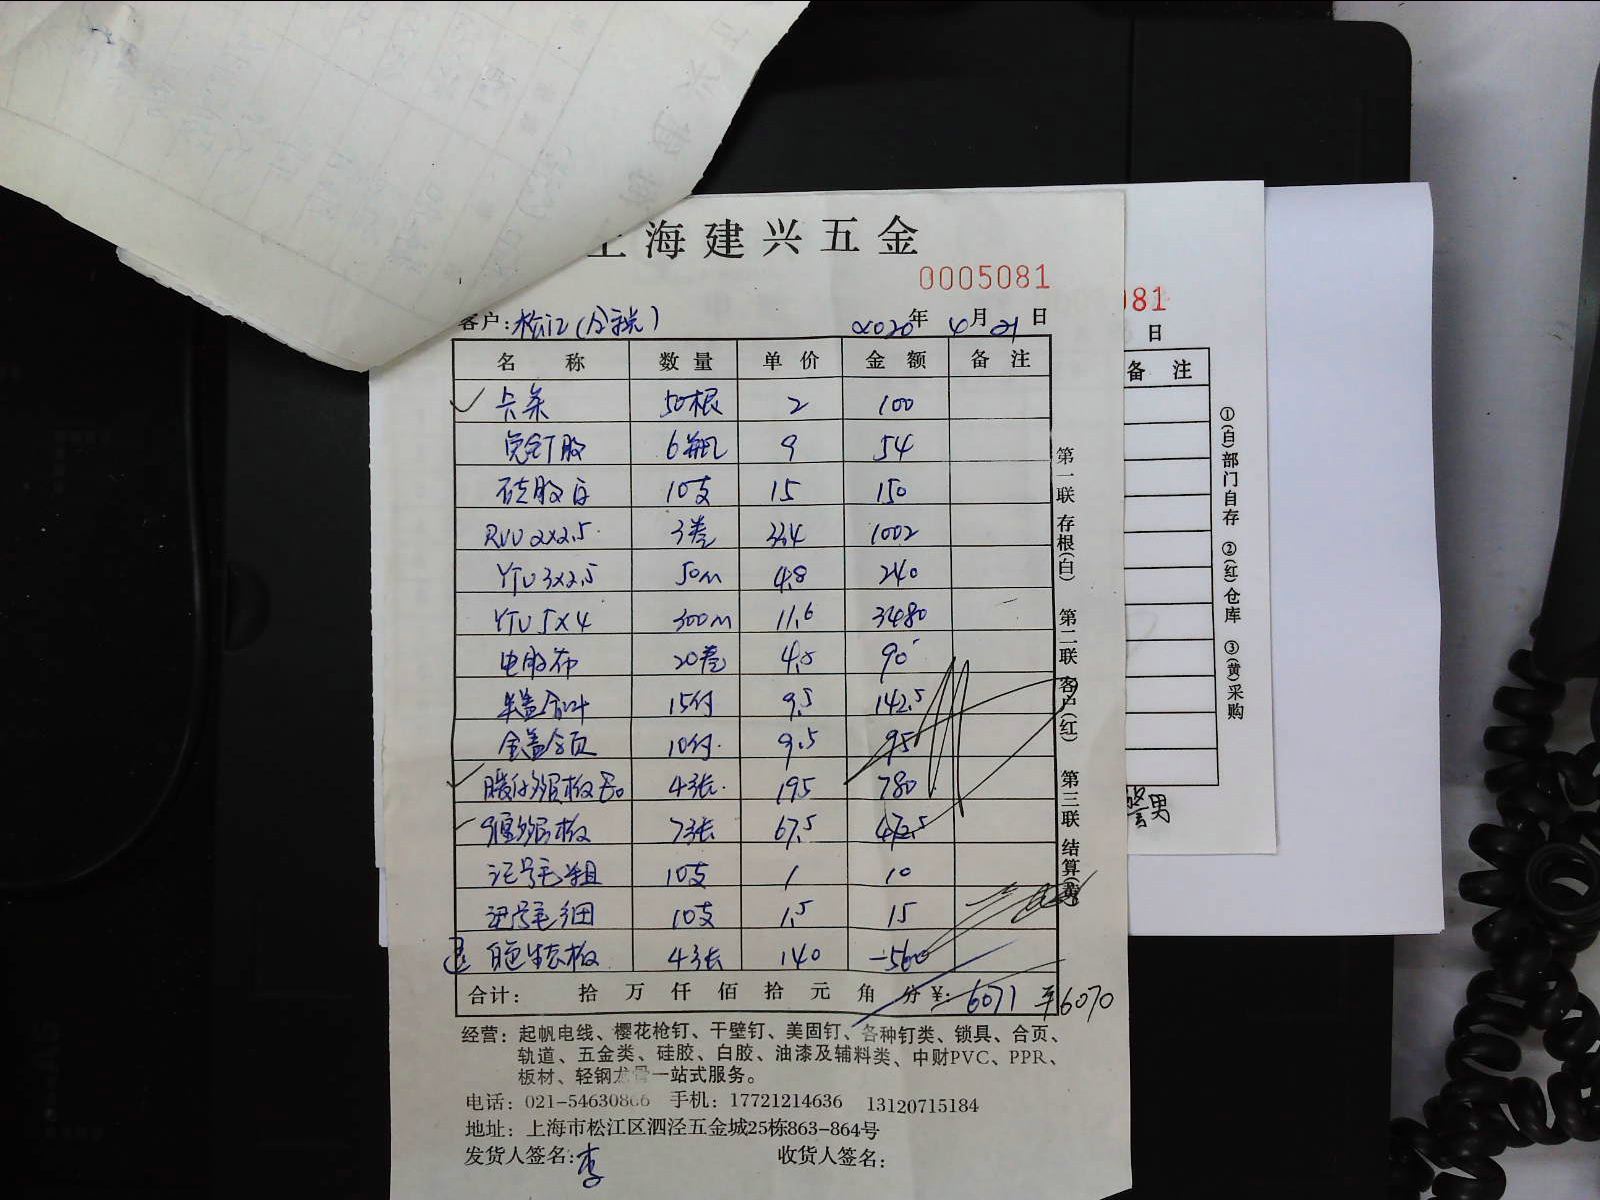 上海建兴五金
0005081
客户: 松江(含税) 2020年 4月21日
名 称 数 量 单 价 金 额 备 注
卡条 50根 2 100
免钉胶 6瓶 9 54
硅胶白 10支 15 150
RVV 2×2.5 3卷 334 1002
YTU 3×2.5 50m 4.8 240
YTU 5×4 300m 11.6 3480
电胶布 20卷 4.5 90
半盖合叶 15付 9.5 142.5
全盖合页 10付 9.5 95
4张 195 780
7张 67.5 472.5
记号毛粗 10支 1 10
记号毛细 10支 1.5 15
退 白色生态板 4张 140 -560
合计: 拾 万 仟 佰 拾 元 角 分 ¥: 6071 平6070
第一联 存根(白) 第二联 客户(红) 第三联 结算(黄)
经营: 起帆电线、樱花枪钉、干壁钉、美固钉、各种钉类、锁具、合页、
轨道、五金类、硅胶、白胶、油漆及辅料类、中财PVC、PPR、
板材、轻钢龙骨一站式服务。
电话: 021-54630866 手机: 17721214636 13120715184
地址: 上海市松江区泗泾五金城25栋863-864号
发货人签名: 李 收货人签名:
081
日
备 注
①(自)部门自存 ②(红)仓库 ③(黄)采购